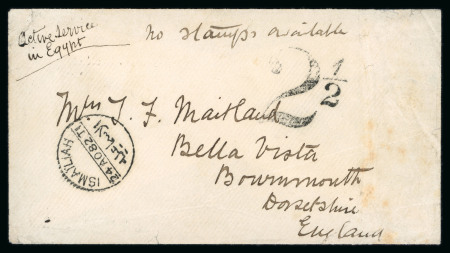 Active Service
in Egypt
no stamps available
2 1/2
Mrs J. F. Maitland
Bella Vista
Bournmouth
Dorsetshire
England
ISMAILIAH
24 AO 82 T1
الاسماعيلية